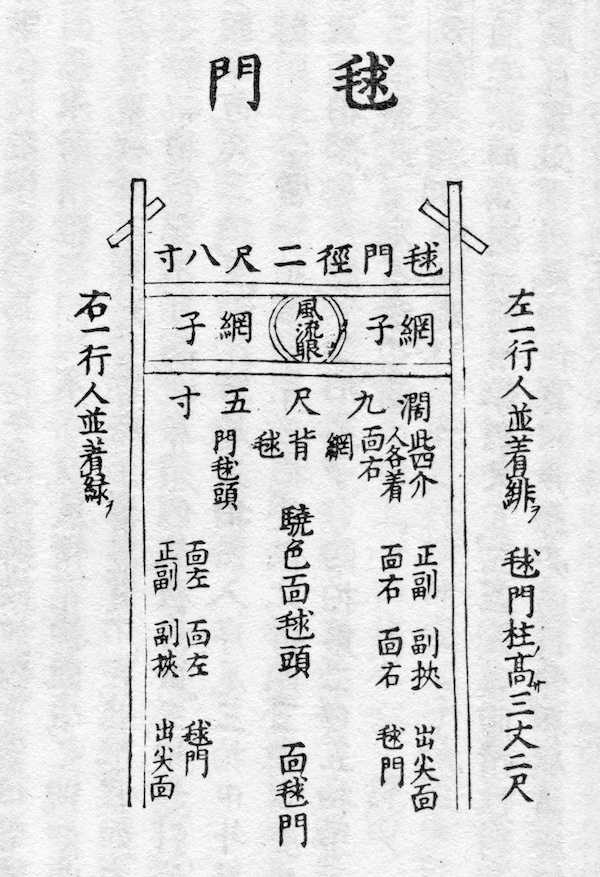 毬門
毬門徑二尺八寸
網子
風流眼
網子
左一行人並着緋ヲ
毬門柱ノ高サ三丈二尺
濶九尺五寸
此四介
人各着
面右
網
背
毬
門毬頭
驍色面毬頭
面毬門
正副
面右
副挾
面右
出尖面
毬門
面左
正副
面左
副挾
毬門
出尖面
右一行人並着緑ヲ